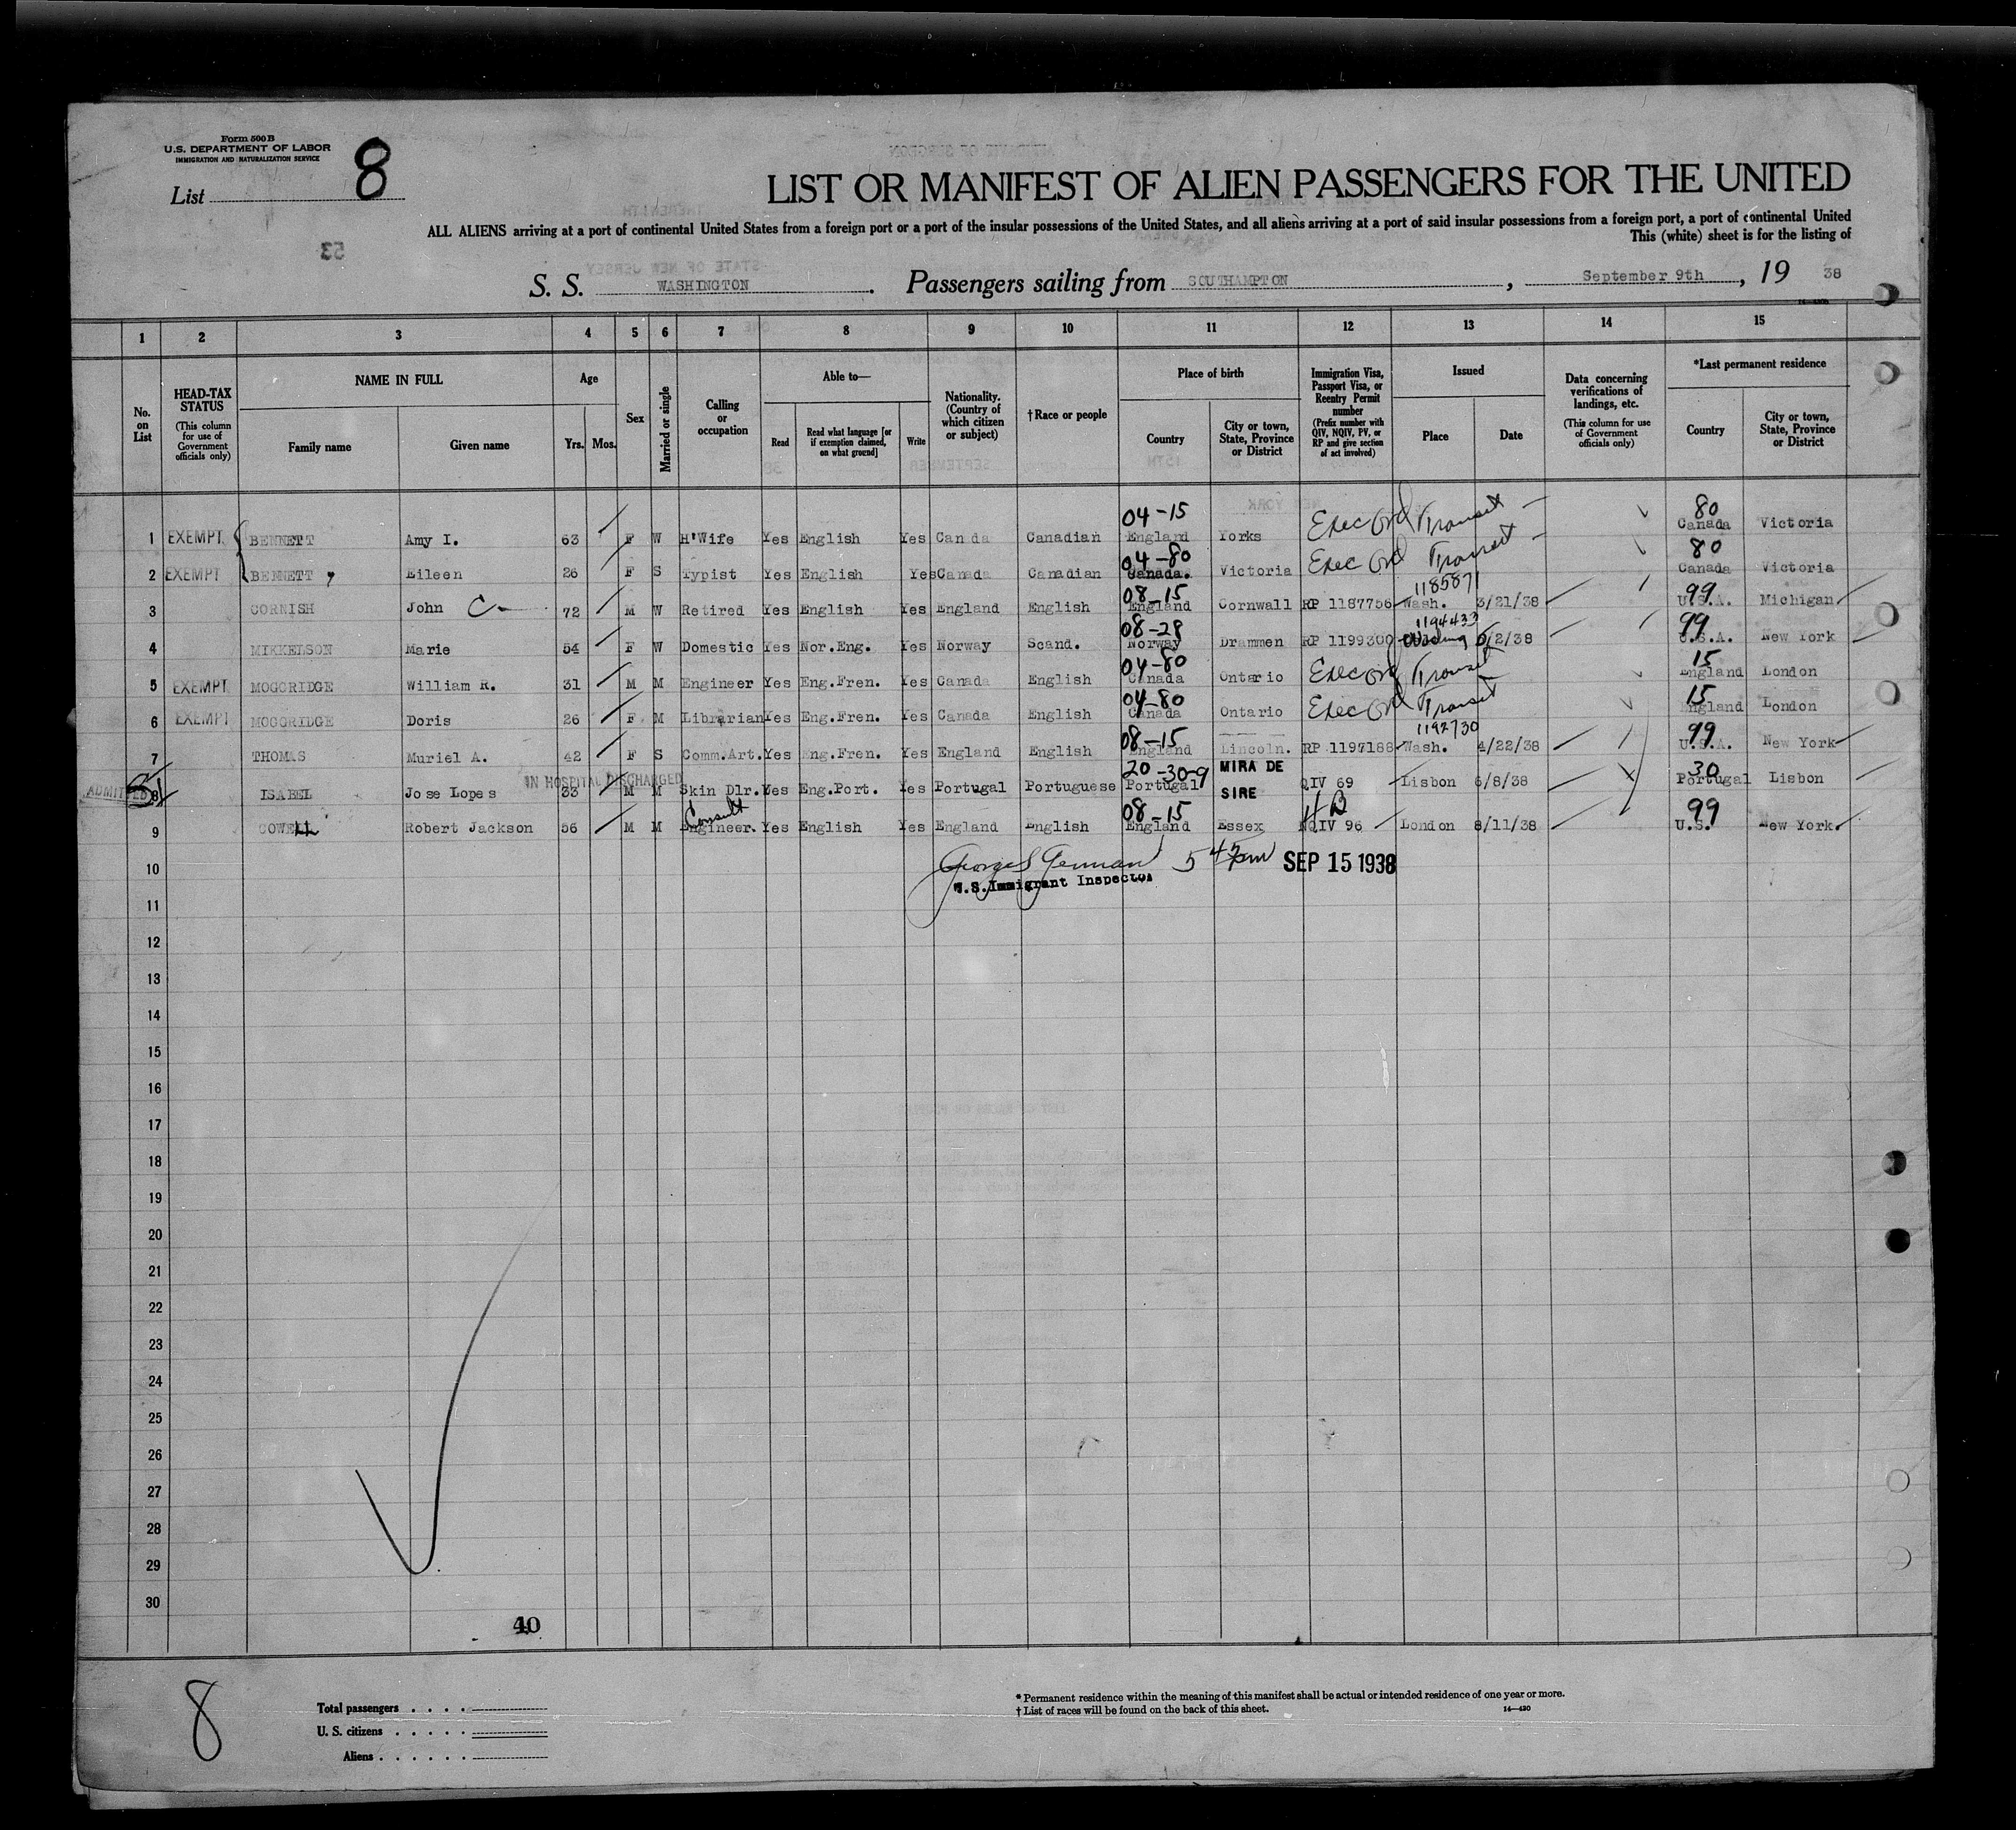 Form 500 B
U.S. DEPARTMENT OF LABOR
IMMIGRATION AND NATURALIZATION SERVICE
List 8
LIST OR MANIFEST OF ALIEN PASSENGERS FOR THE UNITED
ALL ALIENS arriving at a port of continental United States from a foreign port or a port of the insular possessions of the United States, and all aliens arriving at a port of said insular possessions from a foreign port, a port of continental United
This (white) sheet is for the listing of
53
S. S. WASHINGTON. Passengers sailing from SOUTHAMPTON, September 9th, 19 38
1 2 3 4 5 6 7 8 9 10 11 12 13 14 15
No. on List
HEAD-TAX STATUS (This column for use of Government officials only)
NAME IN FULL
Family name Given name
Age
Yrs. Mos.
Sex
Married or single
Calling or occupation
Able to—
Read Read what language [or if exemption claimed, on what ground] Write
Nationality. (Country of which citizen or subject)
†Race or people
Place of birth
Country City or town, State, Province or District
Immigration Visa, Passport Visa, or Reentry Permit number (Prefix number with QIV, NQIV, PV, or RP and give section of act involved)
Issued
Place Date
Data concerning verifications of landings, etc. (This column for use of Government officials only)
*Last permanent residence
Country City or town, State, Province or District
04-15 80
1 EXEMPT BENNETT Amy I. 63 F W H'Wife Yes English Yes Canada Canadian England Yorks Exec Ord Transit Canada Victoria
04-80 80
2 EXEMPT BENNETT, Eileen 26 F S Typist Yes English Yes Canada Canadian Canada. Victoria Exec Ord Transit Canada Victoria
08-15 1185871 99
3 CORNISH John C 72 M W Retired Yes English Yes England English England Cornwall RP 1187756 Wash. 3/21/38 U.S.A. Michigan
08-28 1194433 99
4 MIKKELSON Marie 54 F W Domestic Yes Nor.Eng. Yes Norway Scand. Norway Drammen RP 1199300 /2/38 U.S.A. New York
04-80 15
5 EXEMPT MOGGRIDGE William R. 31 M M Engineer Yes Eng.Fren. Yes Canada English Canada Ontario Exec Ord Transit England London
04-80 15
6 EXEMPT MOGGRIDGE Doris 26 F M Librarian Yes Eng.Fren. Yes Canada English Canada Ontario Exec Ord Transit England London
08-15 1192730 99
7 THOMAS Muriel A. 42 F S Comm.Art. Yes Eng.Fren. Yes England English England Lincoln. RP 1197188 Wash. 4/22/38 U.S.A. New York
IN HOSPITAL DISCHARGED 20-30-9 MIRA DE 30
ADMITTED 8 ISABEL Jose Lopes 33 M M Skin Dlr. Yes Eng.Port. Yes Portugal Portuguese Portugal SIRE QIV 69 Lisbon 6/8/38 Portugal Lisbon
Consult 08-15 99
9 COWELL Robert Jackson 56 M M Engineer. Yes English Yes England English England Essex NQIV 96 London 8/11/38 U.S. New York.
10
George S German 5 45 pm SEP 15 1938
U.S. Immigrant Inspector
11
12
13
14
15
16
17
18
19
20
21
22
23
24
25
26
27
28
29
30
40
8
Total passengers . . . .
U. S. citizens . . . . .
Aliens . . . . . .
* Permanent residence within the meaning of this manifest shall be actual or intended residence of one year or more.
† List of races will be found on the back of this sheet. 14—430